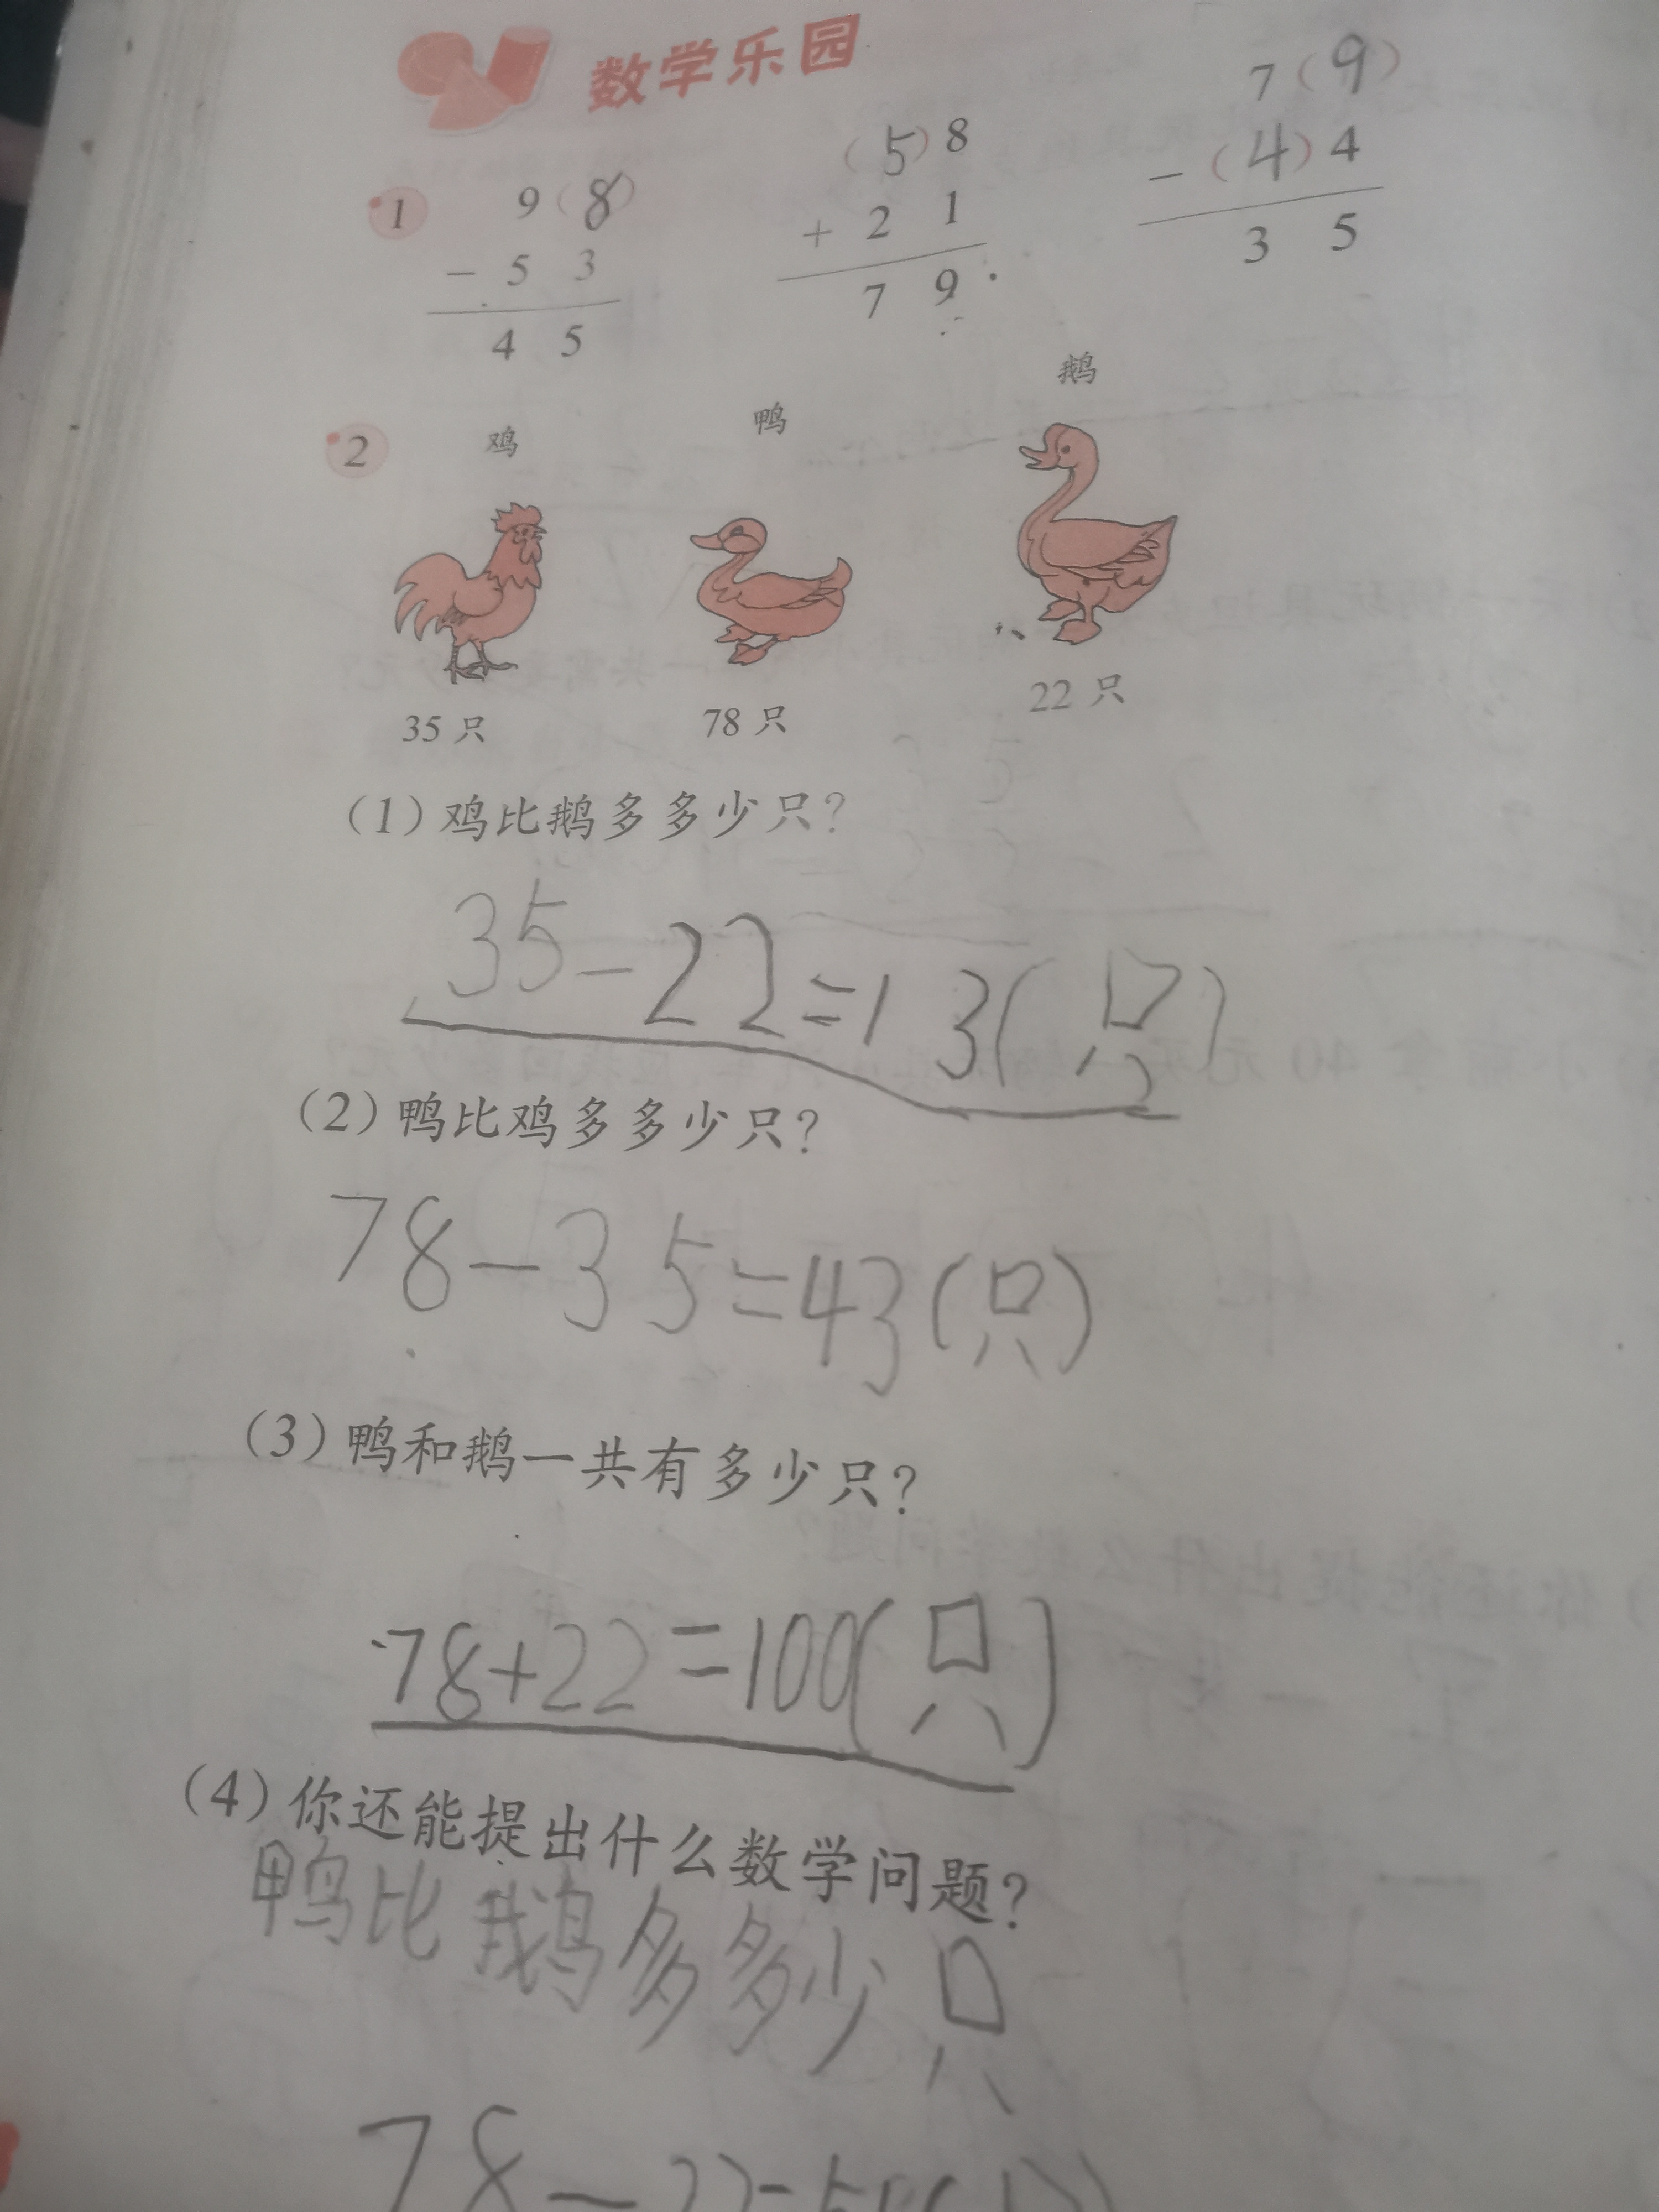 数学乐园
1
9(8)
- 5 3
4 5
(5)8
+ 2 1
7 9
7(9)
-(4)4
3 5
2
鸡 鸭 鹅
35只 78只 22只
(1)鸡比鹅多多少只?
35-22=13(只)
(2)鸭比鸡多多少只?
78-35=43(只)
(3)鸭和鹅一共有多少只?
78+22=100(只)
(4)你还能提出什么数学问题?
鸭比鹅多多少只
78-22=5